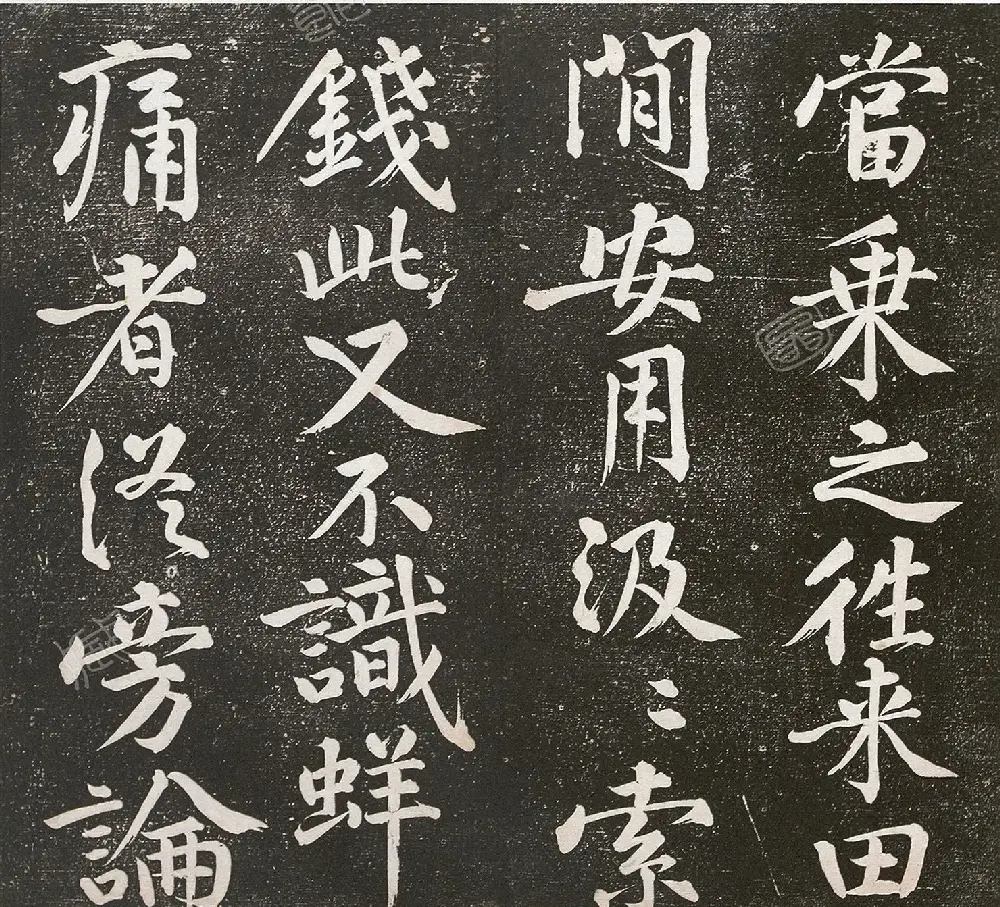 當乗之徃来田
間安用汲〻索
錢此又不識蛘
痛者從旁論